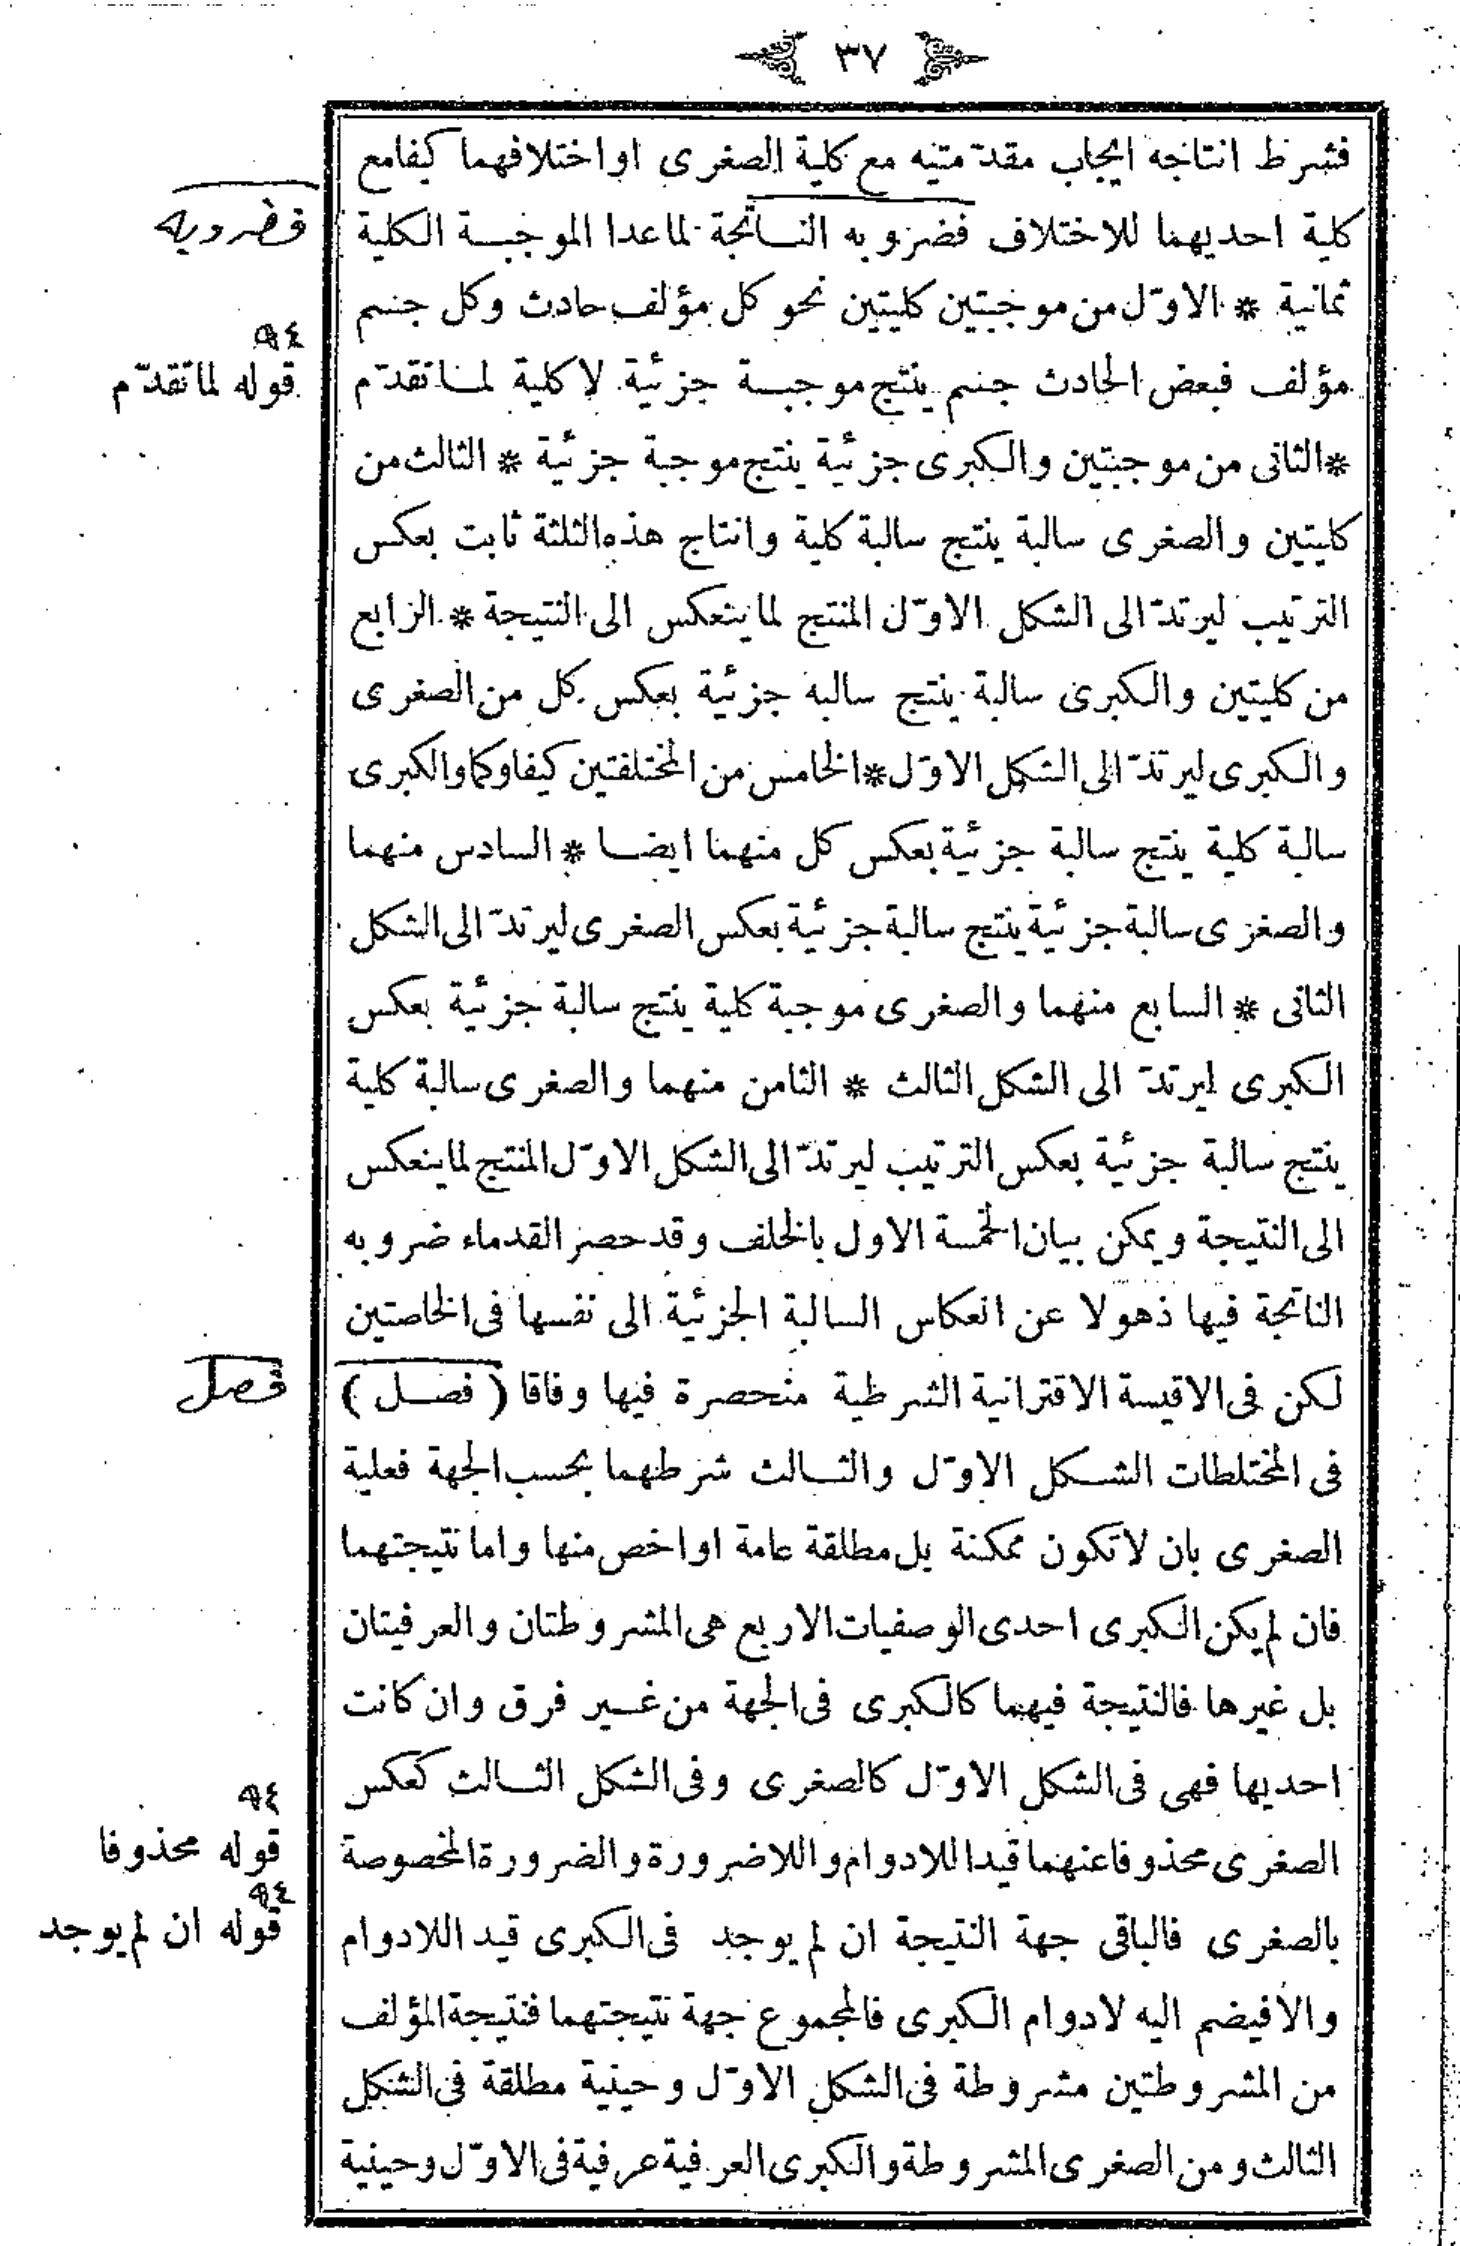 ٣٧
فشرط انتاجه ايجاب مقدّمتيه مع كلية الصغرى او اختلافهما كيفا مع
كلية احديهما للاختلاف فضروبه الناتجة لما عدا الموجبة الكلية
ثمانية * الاوّل من موجبتين كليتين نحو كل مؤلف حادث وكل جسم
مؤلف فبعض الحادث جسم ينتج موجبة جزئية لا كلية لما تقدّم
* الثانى من موجبتين والكبرى جزئية ينتج موجبة جزئية * الثالث من
كليتين والصغرى سالبة ينتج سالبة كلية وانتاج هذه الثلثة ثابت بعكس
الترتيب ليرتدّ الى الشكل الاوّل المنتج لما ينعكس الى النتيجة * الرابع
من كليتين والكبرى سالبة ينتج سالبة جزئية بعكس كل من الصغرى
والكبرى ليرتدّ الى الشكل الاوّل * الخامس من المختلفتين كيفا وكما والكبرى
سالبة كلية ينتج سالبة جزئية بعكس كل منهما ايضا * السادس منهما
والصغرى سالبة جزئية ينتج سالبة جزئية بعكس الصغرى ليرتدّ الى الشكل
الثانى * السابع منهما والصغرى موجبة كلية ينتج سالبة جزئية بعكس
الكبرى ليرتدّ الى الشكل الثالث * الثامن منهما والصغرى سالبة كلية
ينتج سالبة جزئية بعكس الترتيب ليرتدّ الى الشكل الاوّل المنتج لما ينعكس
الى النتيجة ويمكن بيان الخمسة الاول بالخلف وقد حصر القدماء ضروبه
الناتجة فيها ذهولا عن انعكاس السالبة الجزئية الى نفسها فى الخاصتين
لكن فى الاقيسة الاقترانية الشرطية منحصرة فيها وفاقا ( فصل )
فى المختلطات الشكل الاوّل والثالث شرطهما بحسب الجهة فعلية
الصغرى بان لا تكون ممكنة بل مطلقة عامة او اخص منها واما نتيجتهما
فان لم يكن الكبرى احدى الوصفيات الاربع هى المشروطتان والعرفيتان
بل غيرها فالنتيجة فيهما كالكبرى فى الجهة من غير فرق وان كانت
احديها فهى فى الشكل الاوّل كالصغرى وفى الشكل الثالث كعكس
الصغرى محذوفا عنهما قيد اللادوام واللاضرورة والضرورة المخصوصة
بالصغرى فالباقى جهة النتيجة ان لم يوجد فى الكبرى قيد اللادوام
والا فيضم اليه لادوام الكبرى فالمجموع جهة نتيجتهما فنتيجة المؤلف
من المشروطتين مشروطة فى الشكل الاوّل وحينية مطلقة فى الشكل
الثالث ومن الصغرى المشروطة والكبرى العرفية عرفية فى الاوّل وحينية
فضروبه
٩٤
قوله لما تقدّم
فصل
٩٤
قوله محذوفا
٩٤
قوله ان لم يوجد